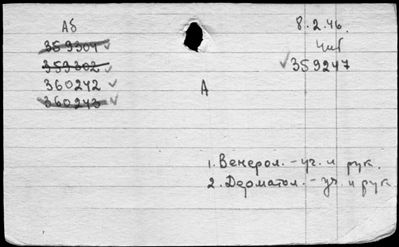 Аб
8.2.46.
359304
Чит
359302
359247
360242
360243
А
1. Венерол. - уч. и рук.
2. Дерматол. - уч. и рук